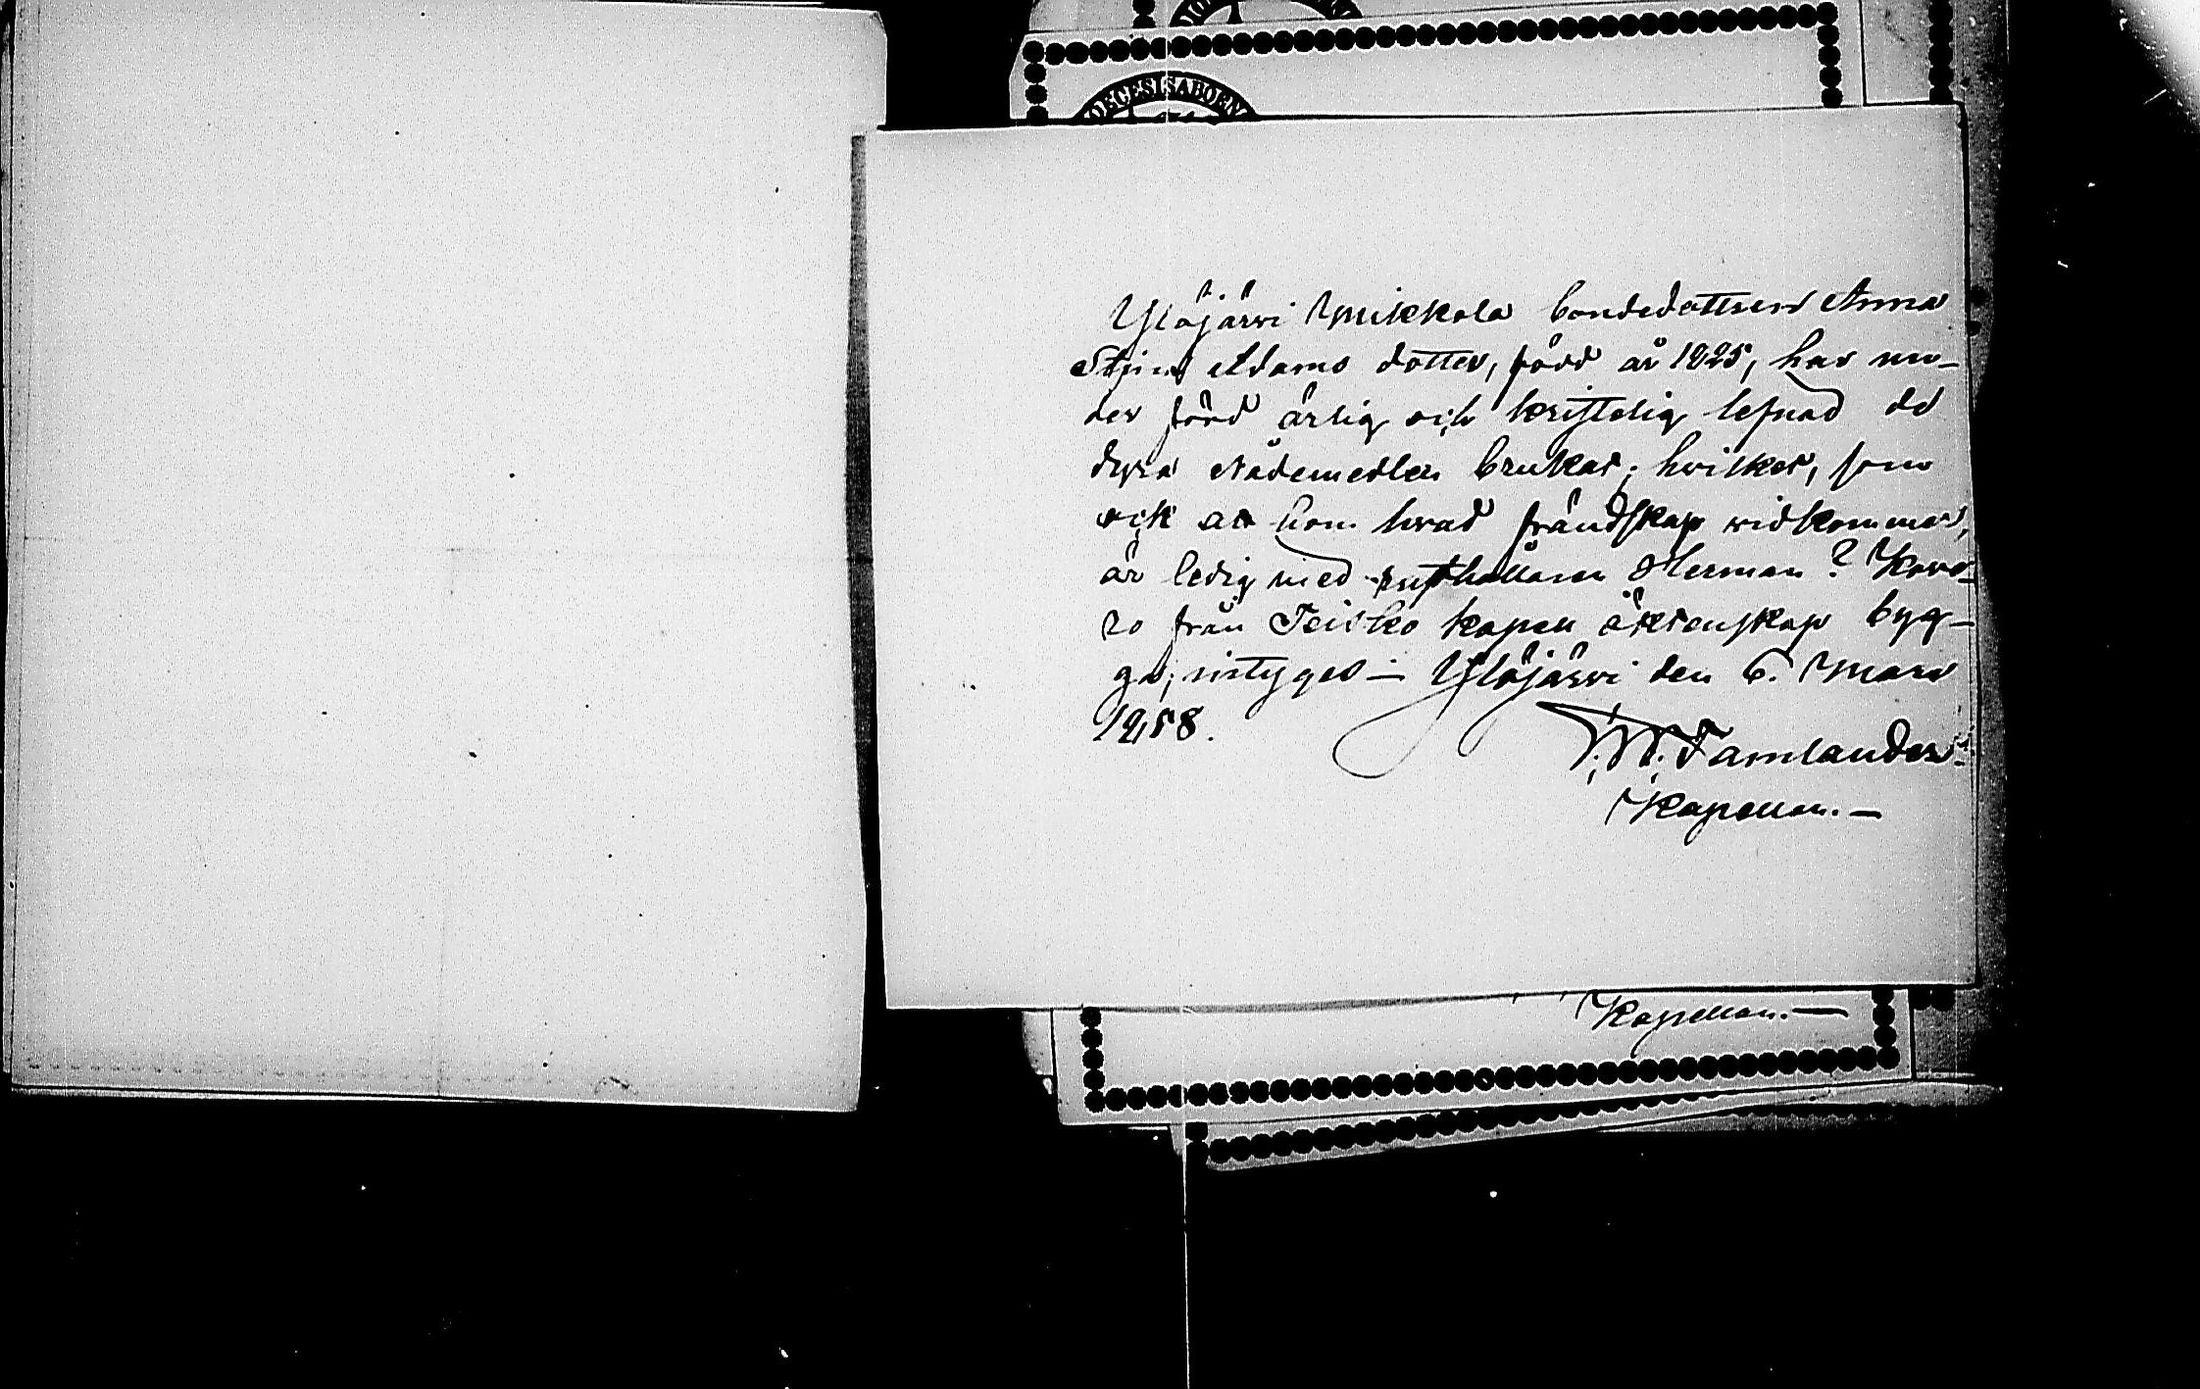 DECESIS ABOEN
Ylöjärvi Mikkola bondedottren Anna
Stina Adams dotter, född år 1825, har un-
der förd ärlig och kristelig lefnad de
dyra Nådemedlen brukat; hvilket, som
ock att hon hvad frändskap widkommer,
är ledig med rusthållaren Herman ?
ro från Teisko kapell äktenskap byg-
ga, intygas – Ylöjärvi den 6. Mars
1858.
Tamlander.
Kapellan. –
Kapellan. –